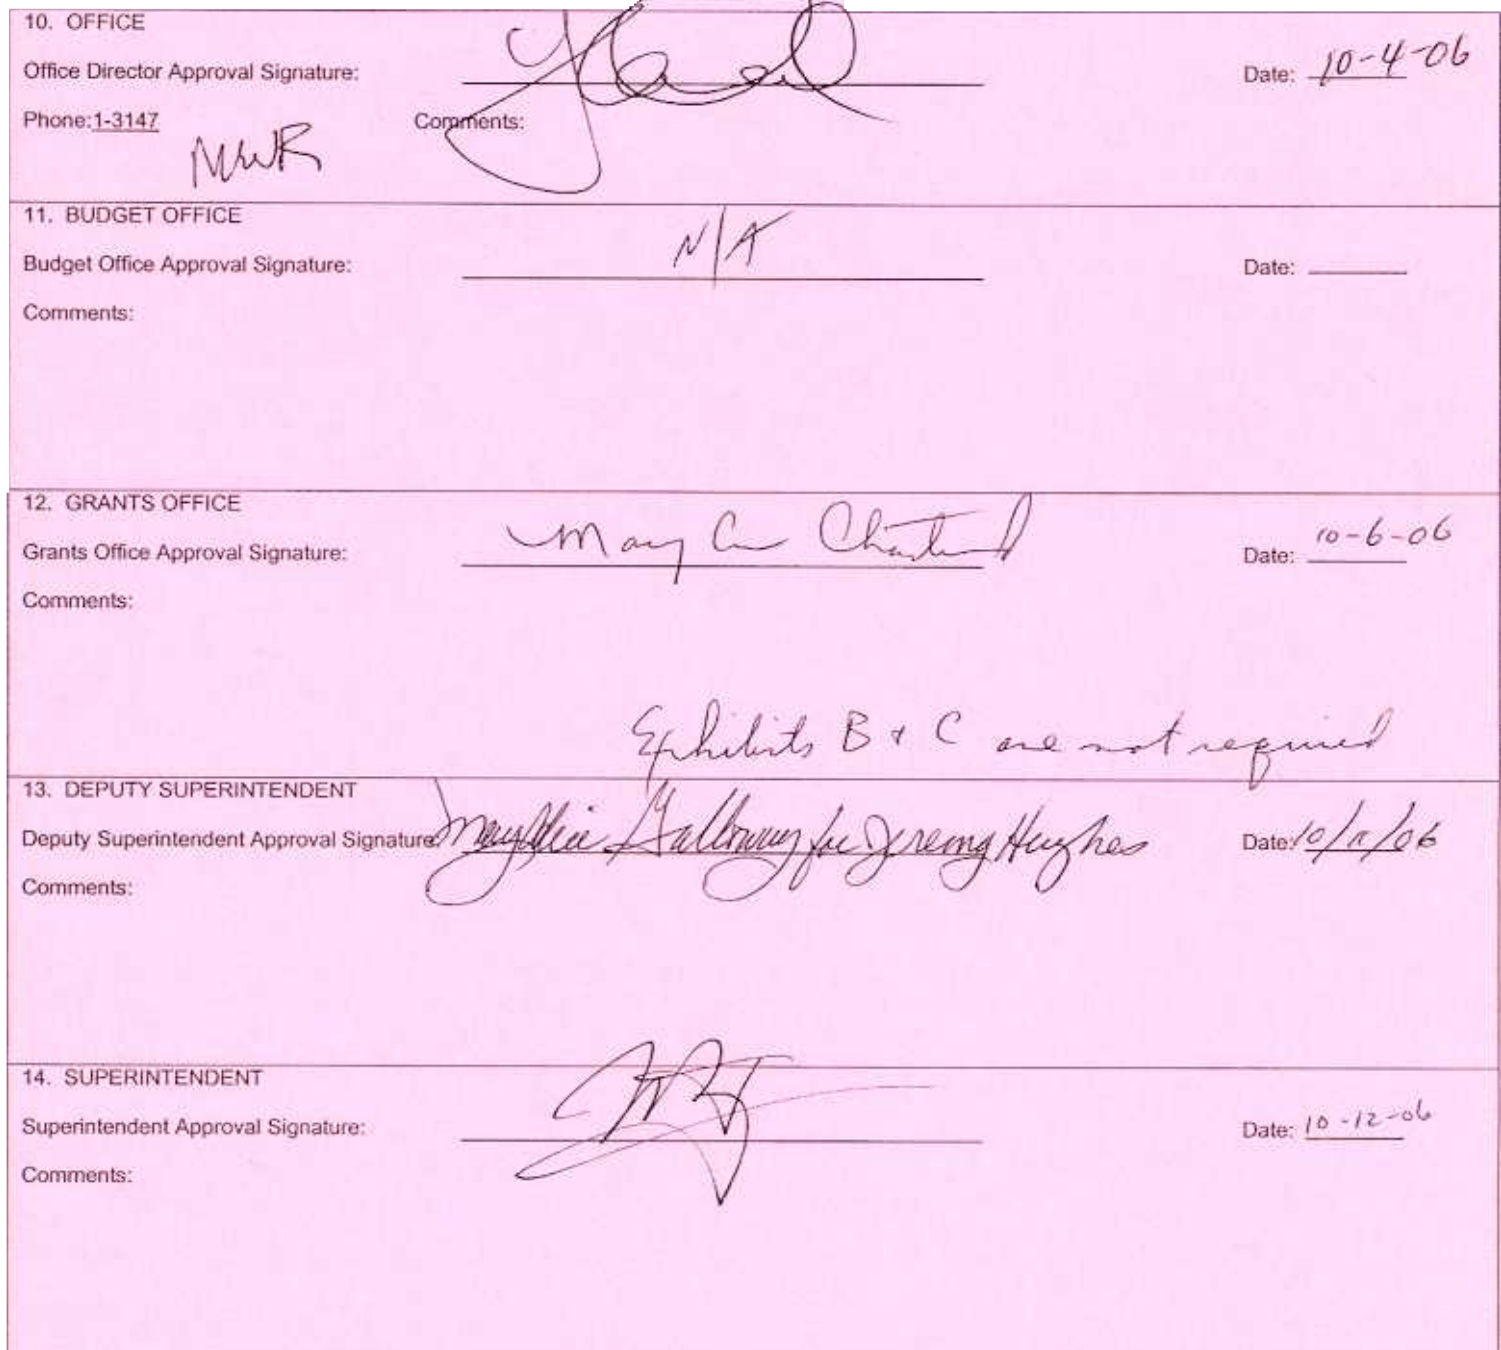 10. OFFICE
Office Director Approval Signature:
Date: 10-4-06
Phone:1-3147 Comments:
MWR
11. BUDGET OFFICE
N/A
Budget Office Approval Signature: Date:
Comments:
12. GRANTS OFFICE
Grants Office Approval Signature: Mary Date: 10-6-06
Comments:
Exhibits B & C are not required
13. DEPUTY SUPERINTENDENT
Deputy Superintendent Approval Signature: MaryAlice Galloway for Jeremy Hughes Date: 10/11/06
Comments:
14. SUPERINTENDENT
Superintendent Approval Signature: Date: 10-12-06
Comments: